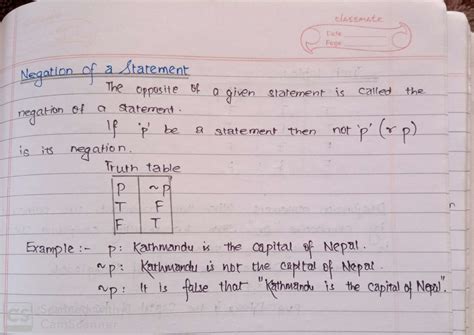 classmate
Date
Page
Negation of a Statement
The opposite of a given statement is called the
negation of a statement.
If 'p' be a statement then not 'p' (~p)
is its negation.
Truth table
P ~p
T F
F T
Example :- p: Kathmandu is the capital of Nepal.
~p: Kathmandu is not the capital of Nepal.
~p: It is false that "Kathmandu is the capital of Nepal".
CS CamScanner